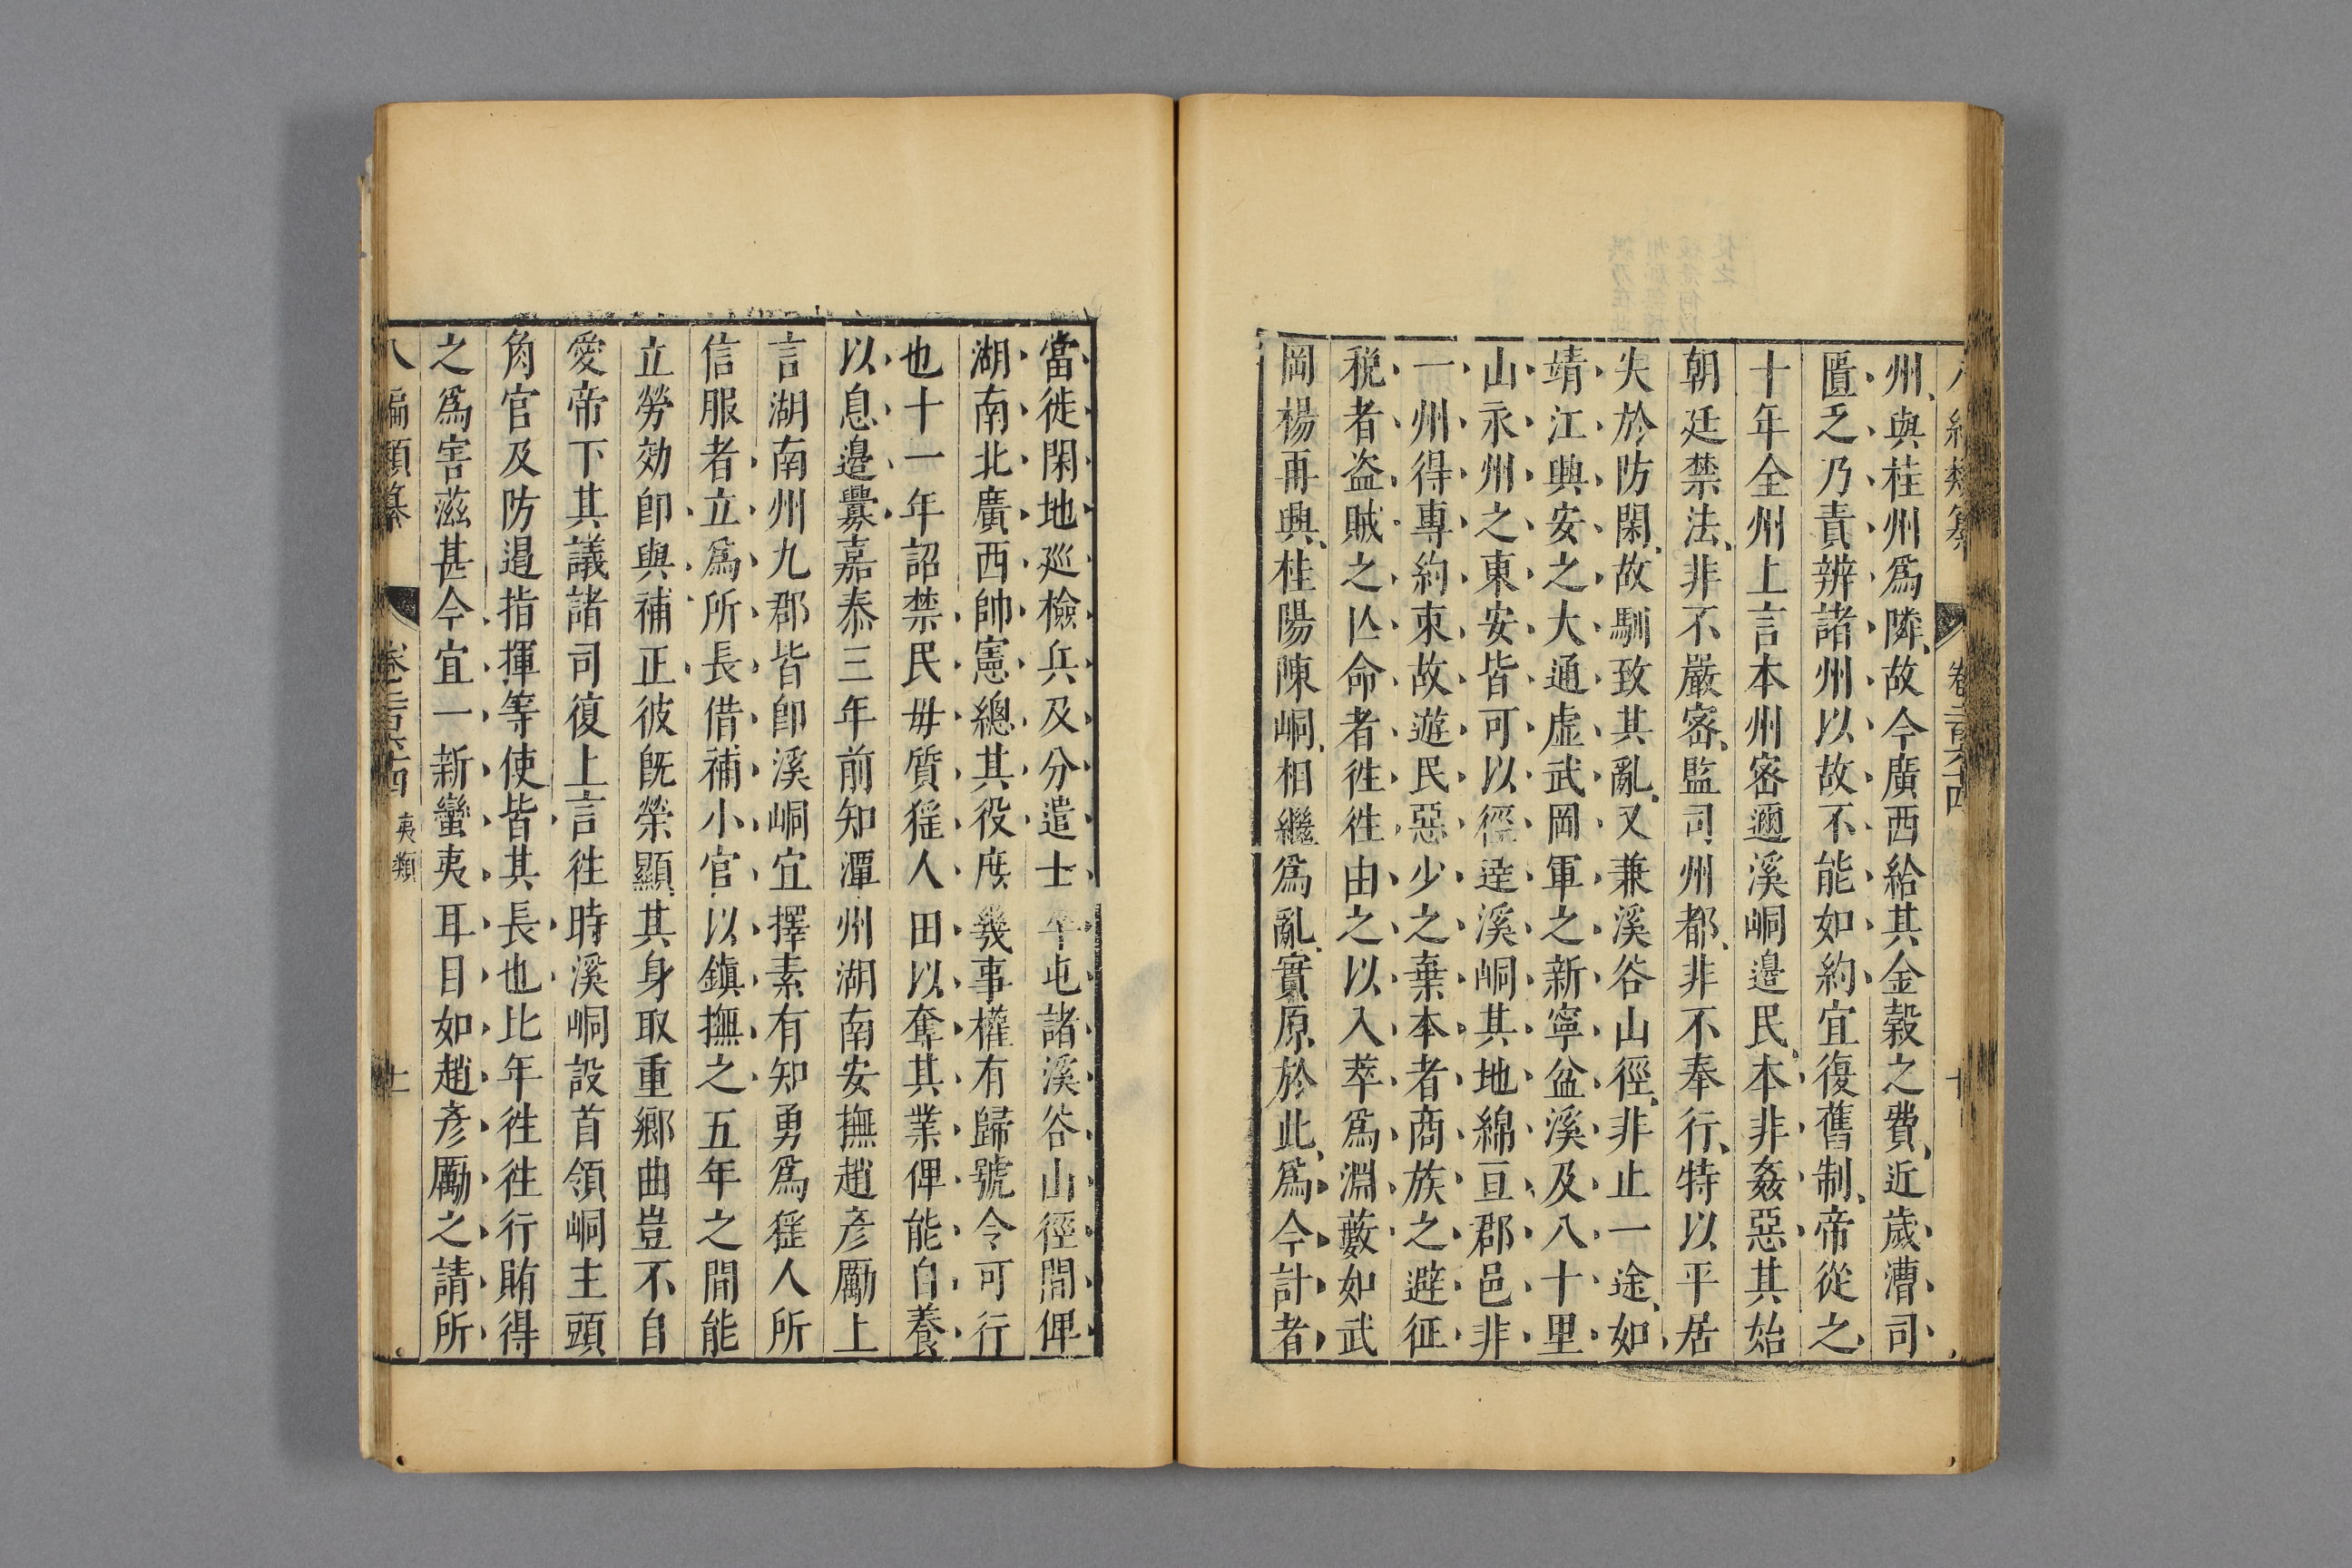 州與桂州爲隣故今廣西給其金穀之費近歲漕司
匱乏乃責辨諸州以故不能如約宜復舊制帝從之
十年全州上言本州密邇溪峒邊民本非姦惡其始
朝廷禁法非不嚴密監司州都非不奉行特以平居
失於防閑故馴致其亂又兼溪谷山徑非止一途如
靖江興安之大通虛武岡軍之新寧盆溪及八十里
山永州之東安皆可以徑達溪峒其地綿亘郡邑非
一州得專約束故遊民惡少之棄本者商族之避征
稅者盗賊之亾命者徃徃由之以入萃爲淵藪如武
岡楊再興桂陽陳峒相繼爲亂實原於此爲今計者
當徙閑地廵檢兵及分遣士卒屯諸溪谷山徑間俾
湖南北廣西帥憲總其役庶幾事權有歸號令可行
也十一年詔禁民毋質猺人田以奪其業俾能自養
以息邊釁嘉泰三年前知潭州湖南安撫趙彦勵上
言湖南州九郡皆卽溪峒宜擇素有知勇爲猺人所
信服者立爲所長借補小官以鎮撫之五年之間能
立勞効卽與補正彼旣榮顯其身取重鄉曲豈不自
愛帝下其議諸司復上言徃時溪峒設首領峒主頭
角官及防遏指揮等使皆其長也比年徃徃行賄得
之爲害滋甚今宜一新蠻夷耳目如趙彦勵之請所
八編類纂 卷二百六十四 夷類